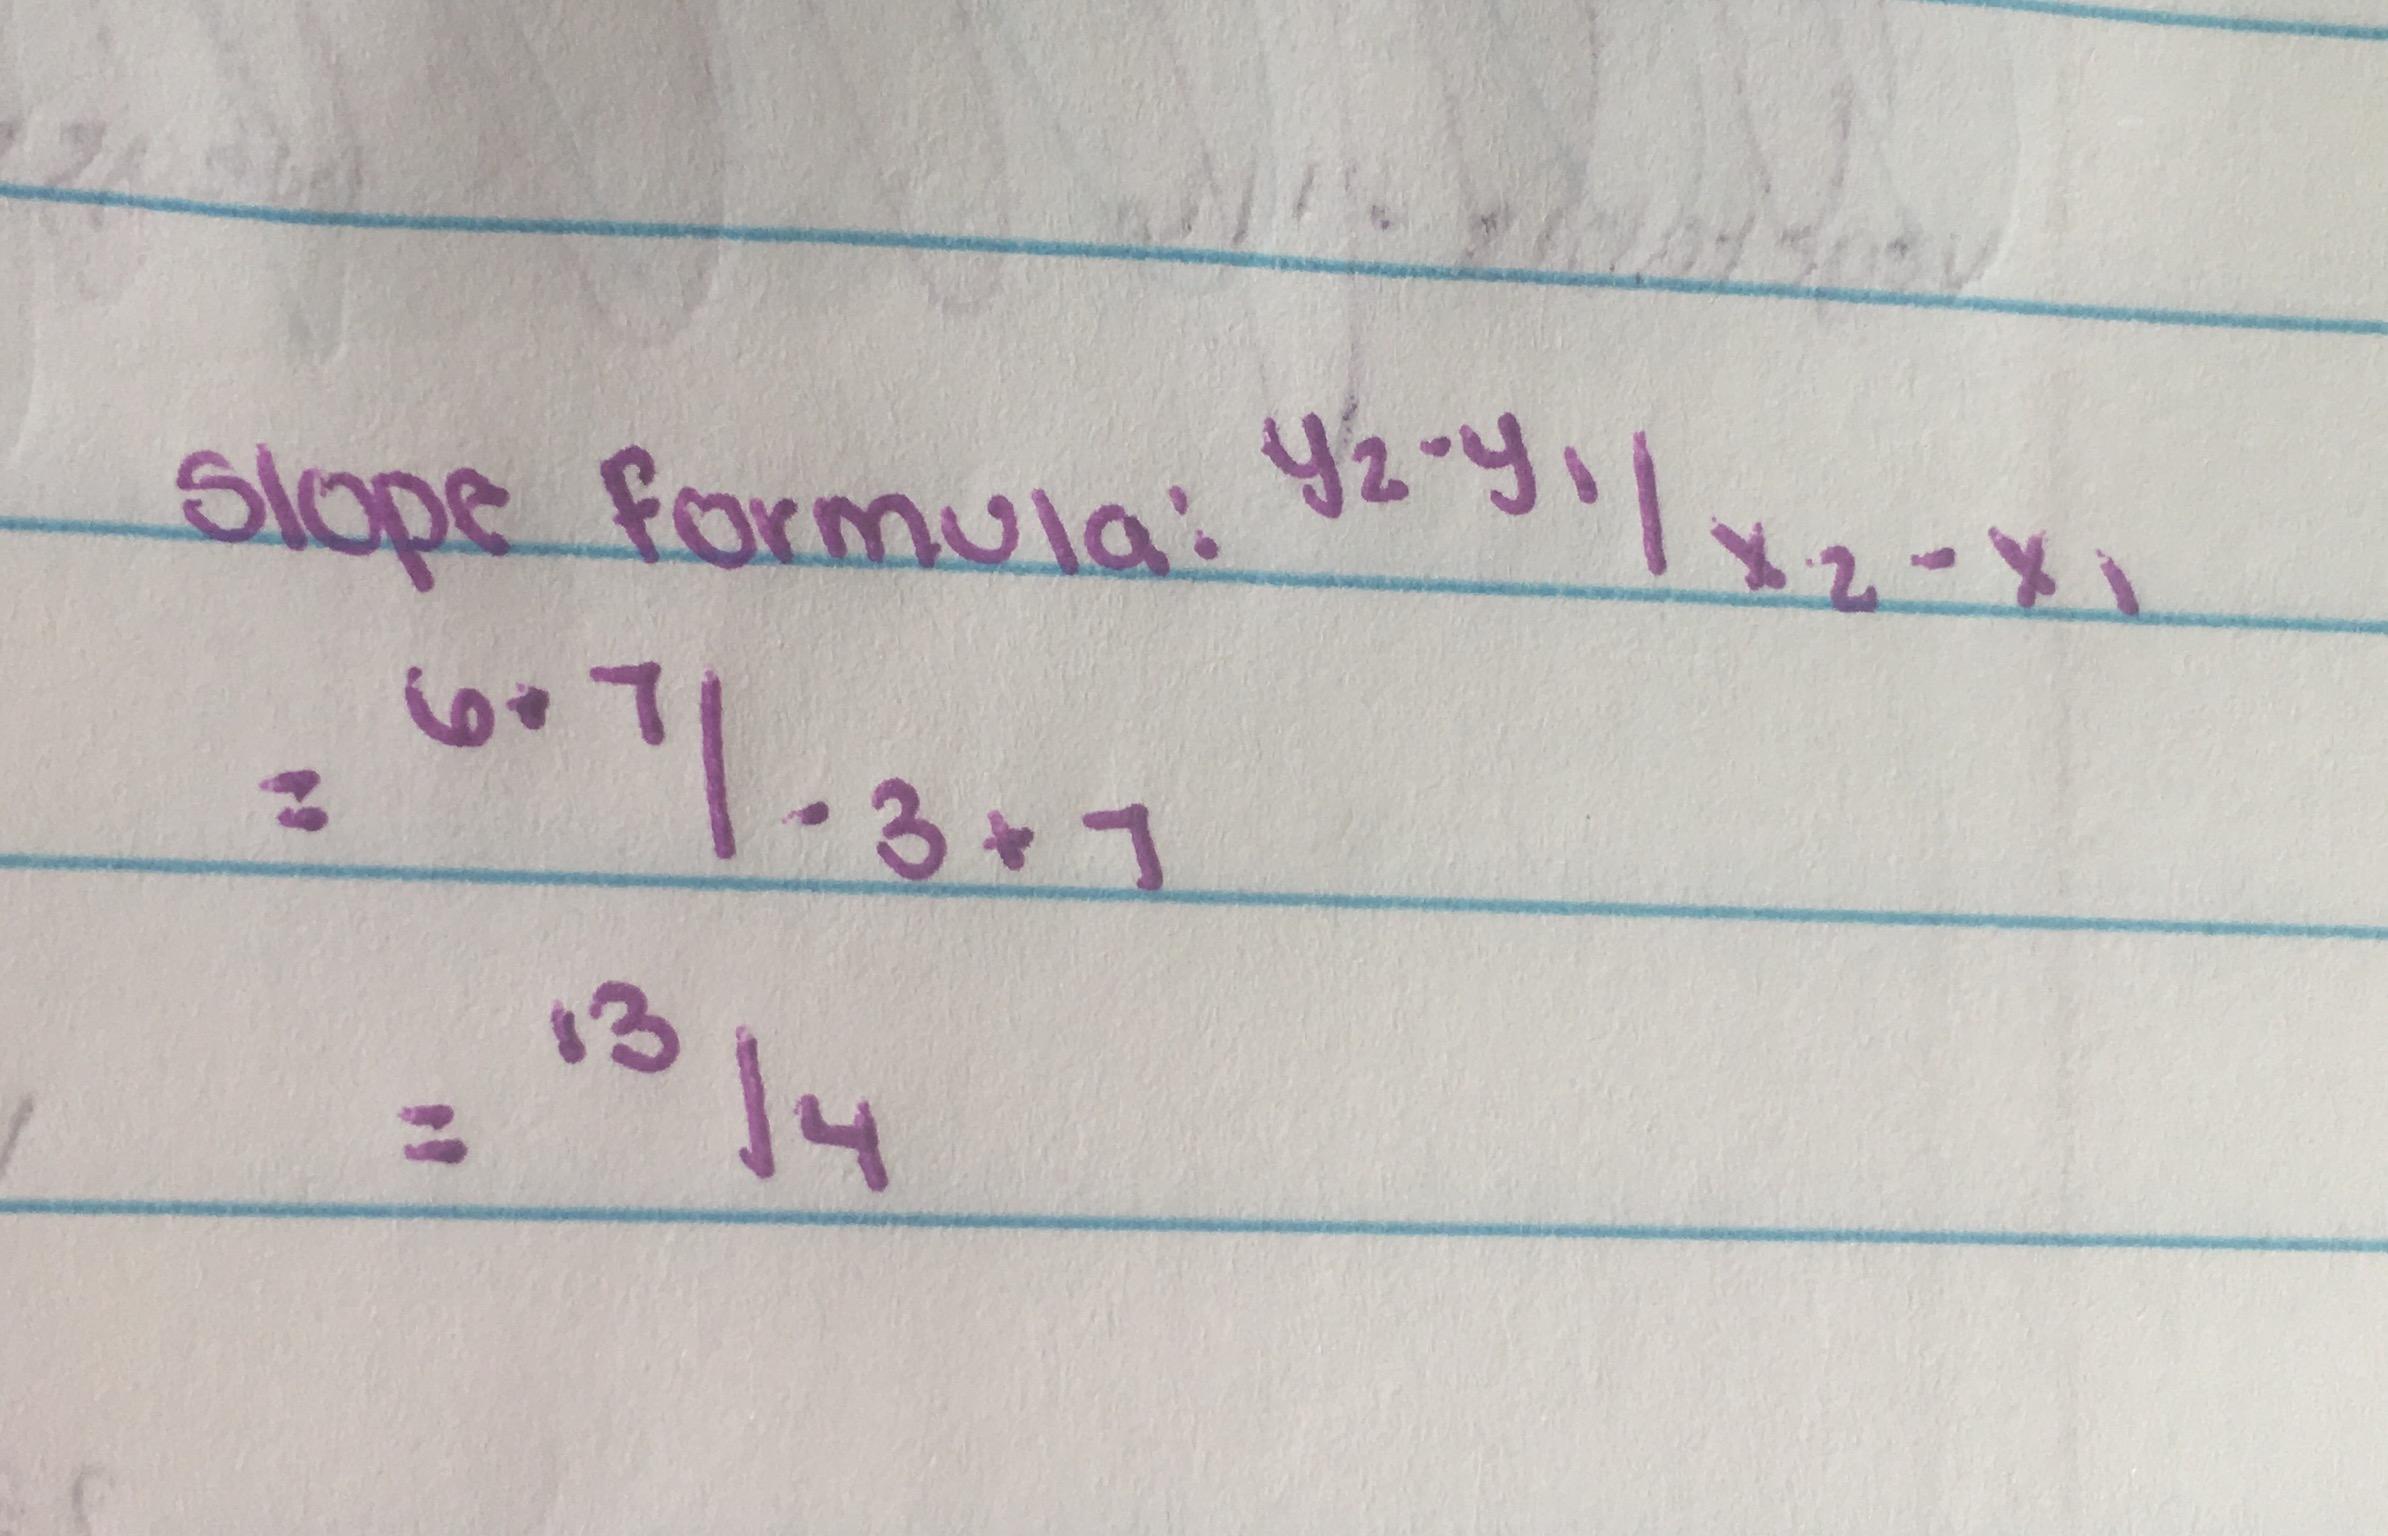 Slope formula: y2-y1/x2-x1
= 6+7/-3+7
= 13/4